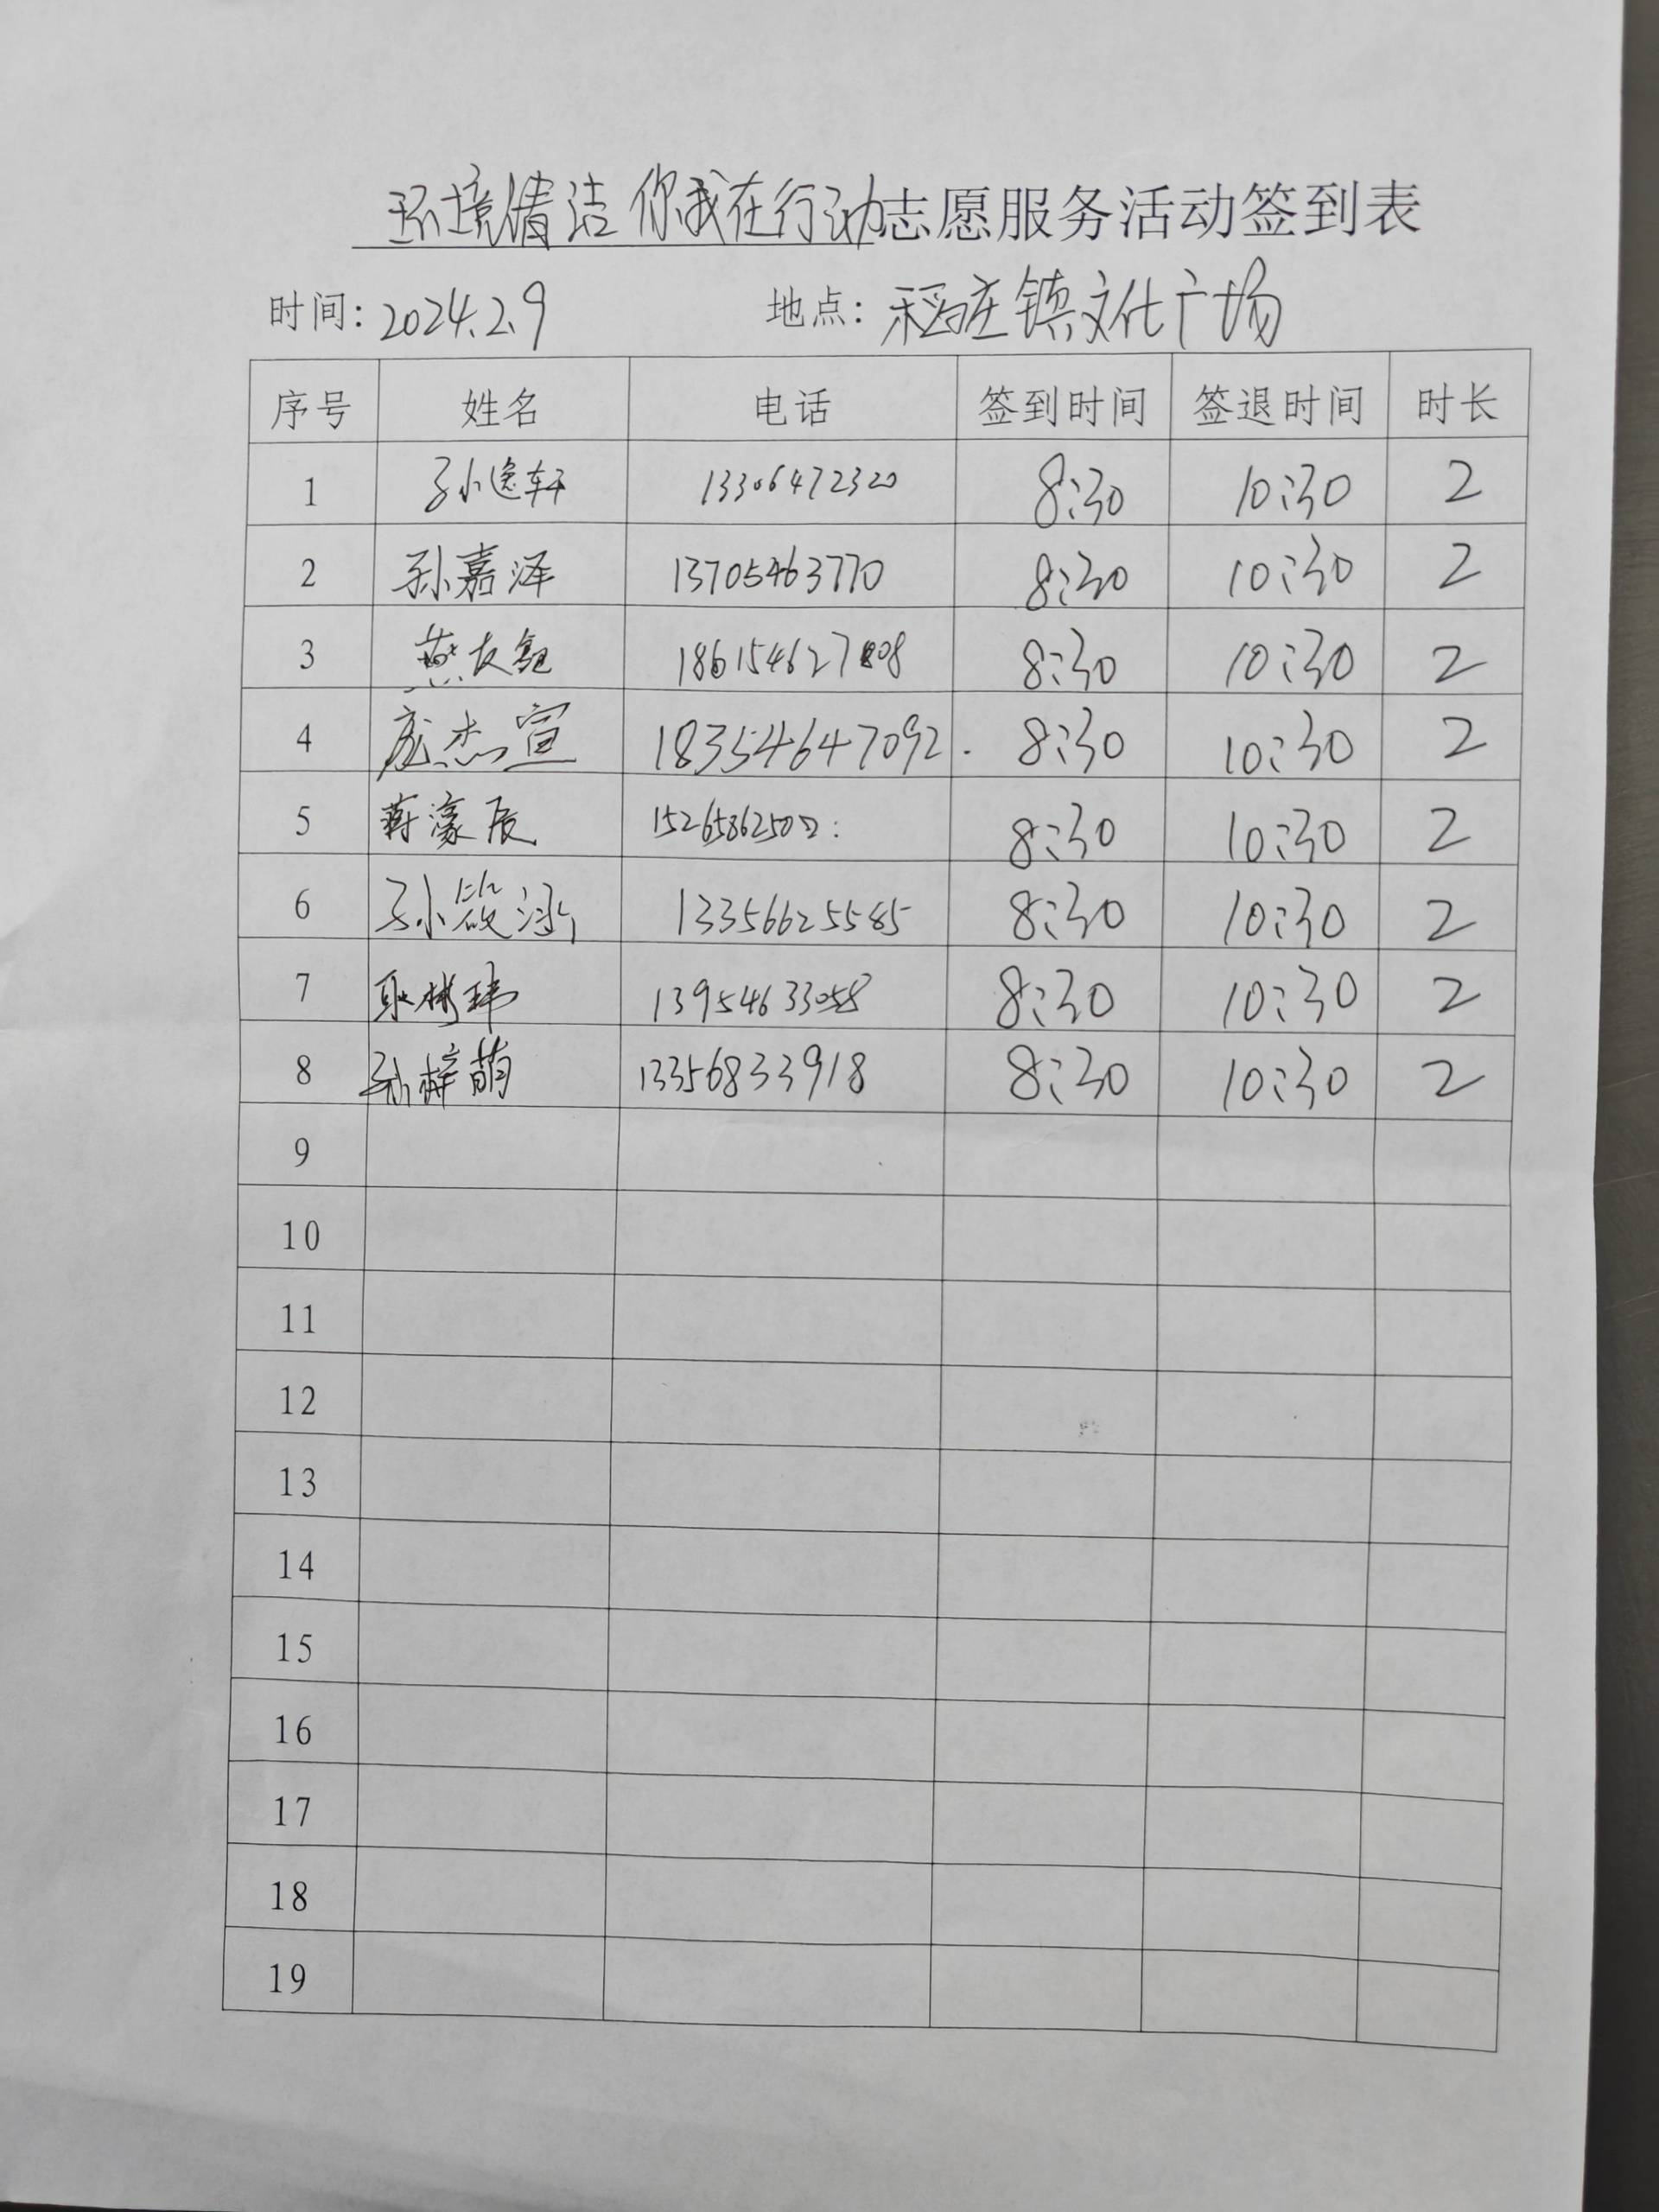 环境清洁 你我在行动志愿服务活动签到表
时间: 2024.2.9 地点: 稻庄镇文化广场
序号 姓名 电话 签到时间 签退时间 时长
1 孙逸轩 13306472320 8:30 10:30 2
2 孙嘉泽 13705463770 8:30 10:30 2
3 燕友 8:30 10:30 2
4 庞杰宣 18354647092. 8:30 10:30 2
5 蒋濠辰 8:30 10:30 2
6 孙筱涵 13356625585 8:30 10:30 2
7 耿彬玮 13954633058 8:30 10:30 2
8 孙梓萌 13356833918 8:30 10:30 2
9
10
11
12
13
14
15
16
17
18
19